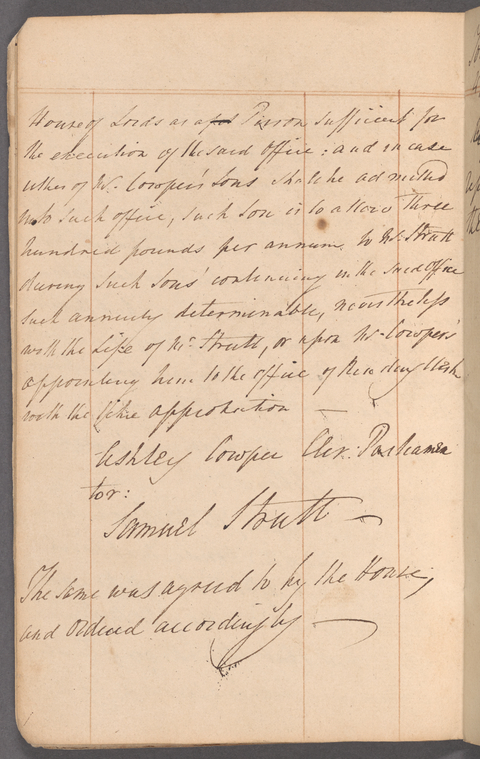 House of Lords as a fit Person sufficient for
the execution of the said Office: and in case
either of Mr. Cowper's Sons shall be admitted
into such office, such Son is to allow Three
hundred pounds per annum to Mr. Strutt
during such Sons' continuing in the said Office
such annuity determinable, nevertheless
with the Life of Mr. Strutt, or upon Mr. Cowper's
appointing him to the office of Reading Clerk
with the like approbation
Ashley Cowper Cler: Parliamen
tor:
Samuel Strutt
The same was agreed to by the House,
and Ordered accordingly